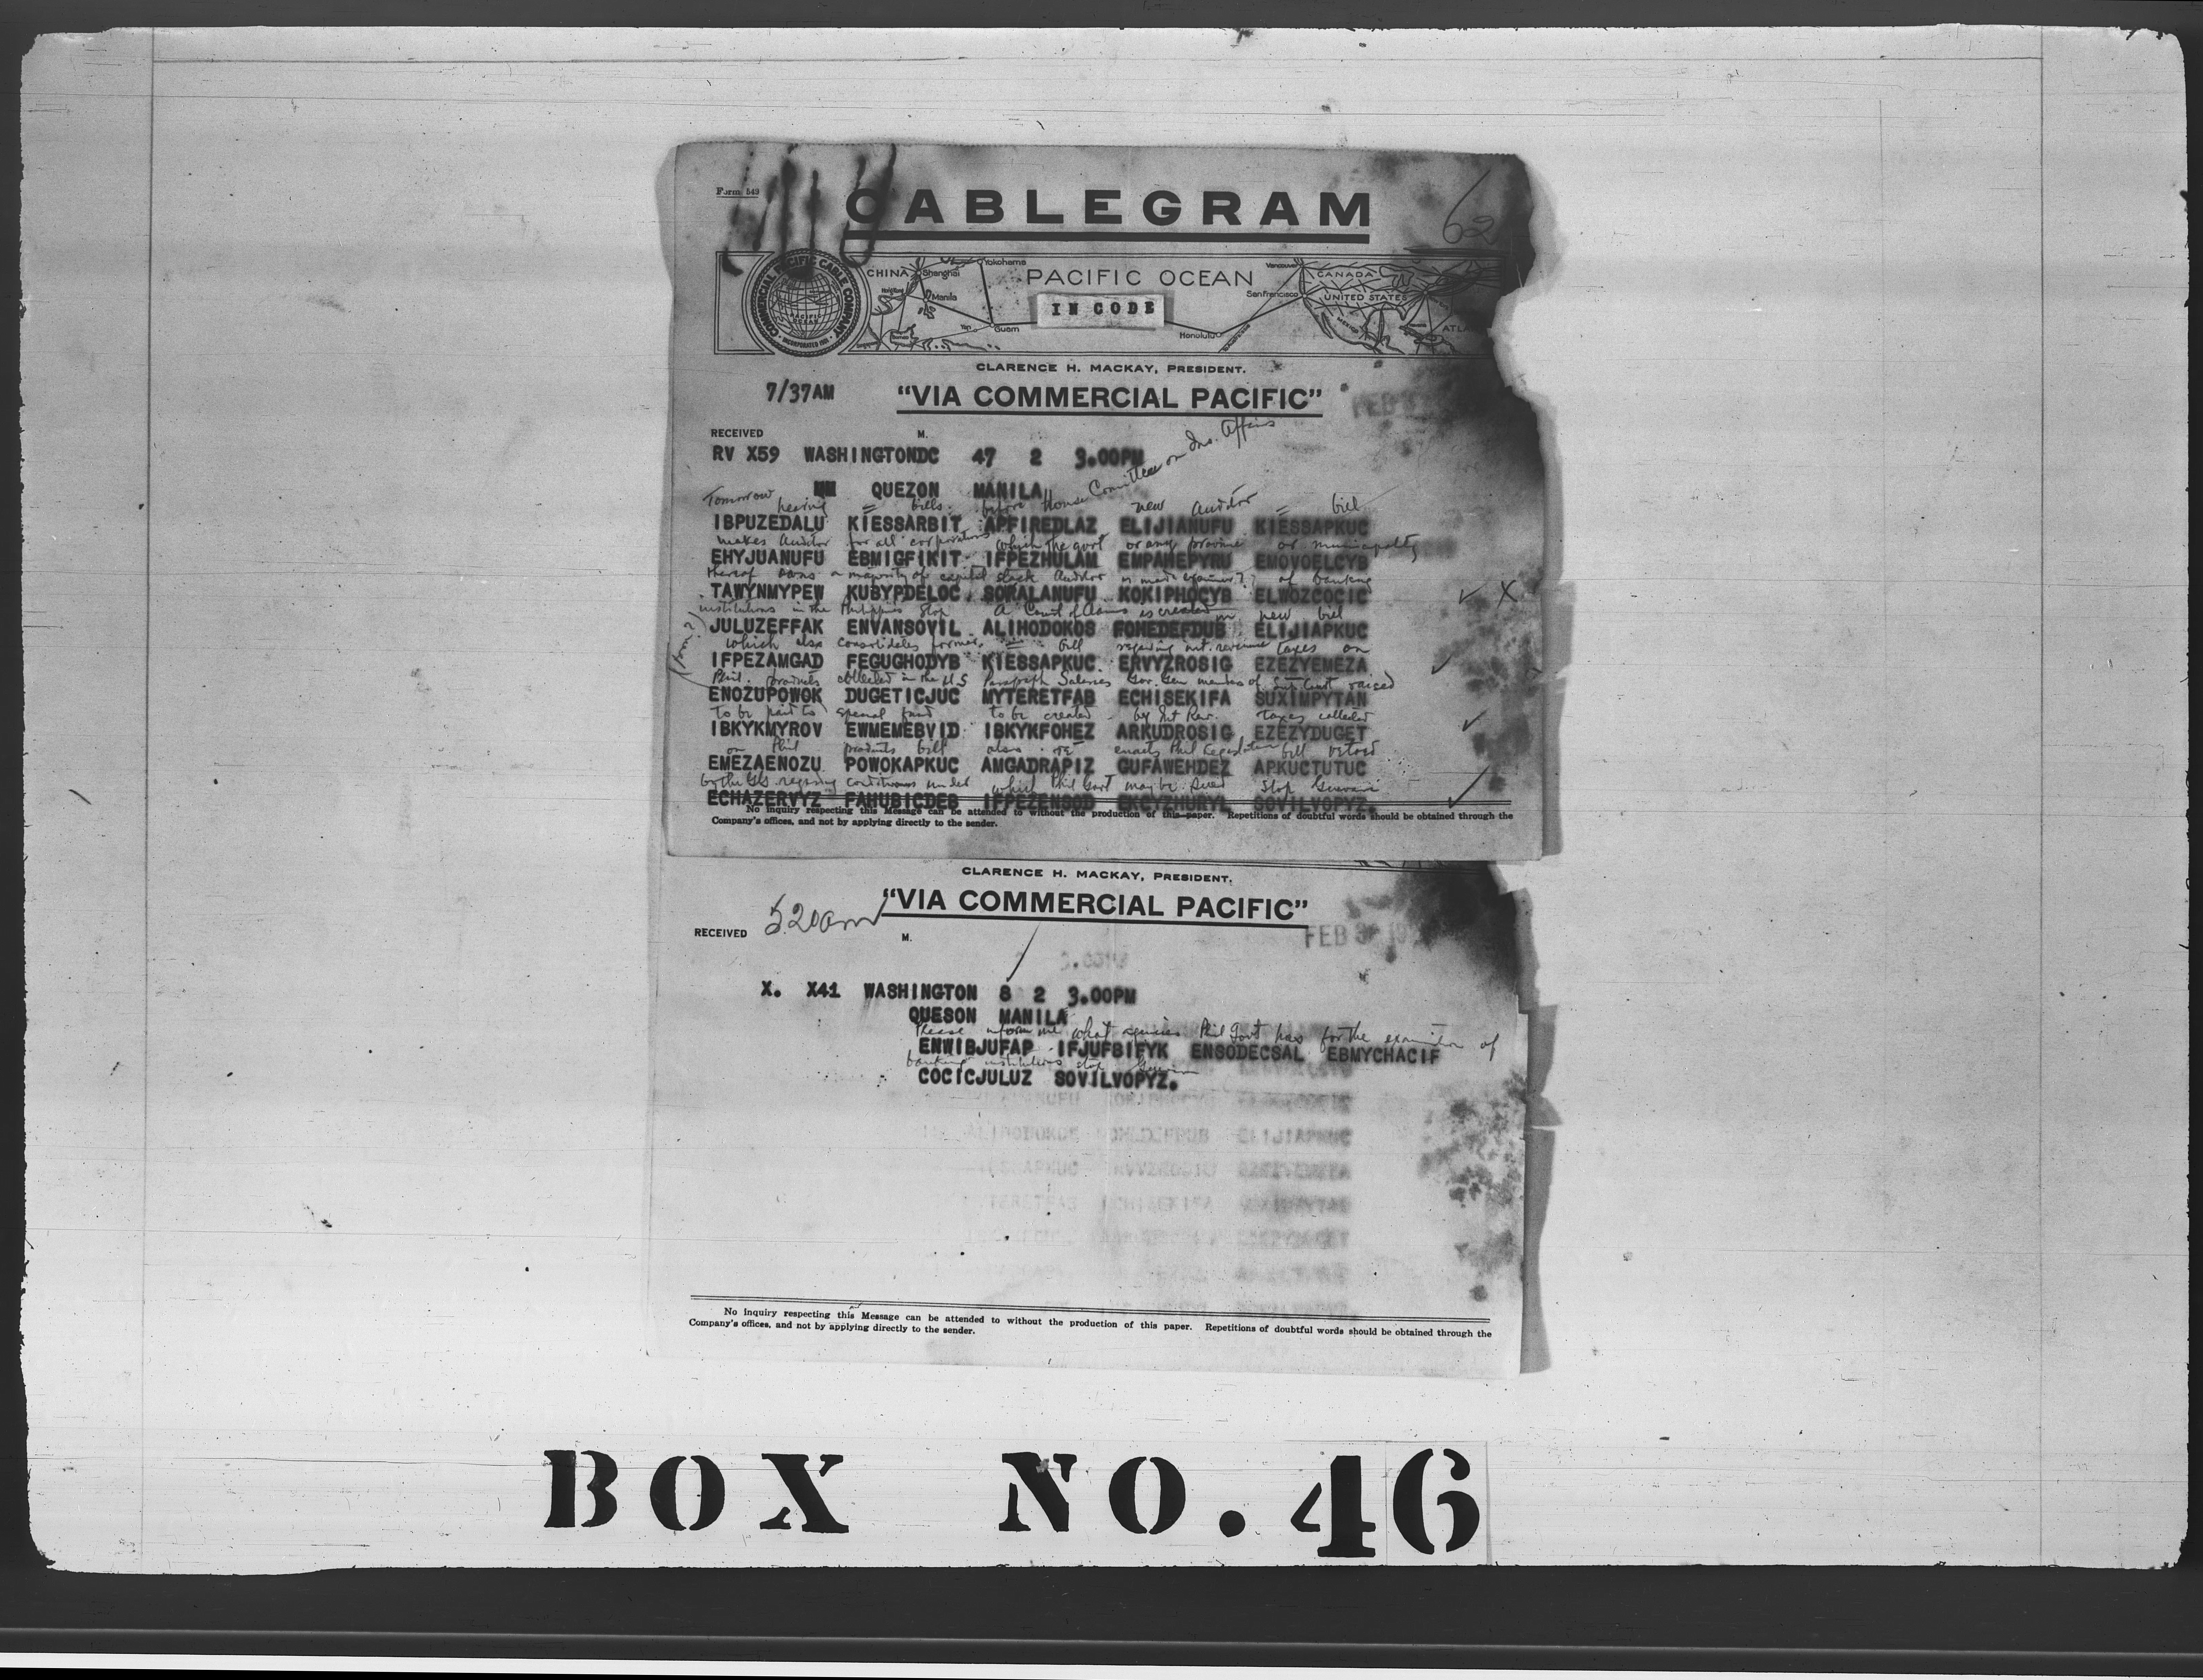 Form 549
62
CABLEGRAM
COMMERCIAL PACIFIC CABLE COMPANY
PACIFIC OCEAN
INCORPORATED 1901
CHINA
Shanghai
Yokohama
Hong Kong
Manila
Yap
Guam
Borneo
PACIFIC OCEAN
IN CODE
Honolulu
Vancouver
San Francisco
CANADA
UNITED STATES
MEXICO
ATLA
CLARENCE H. MACKAY, PRESIDENT.
7/37AM
"VIA COMMERCIAL PACIFIC"
FEB
RECEIVED M.
RV X59 WASHINGTONDC 47 2 3.00PM
QUEZON MANILA
Tomorrow hearing = bills before House Comittee on Ins. Affairs new Auditor = bill
IBPUZEDALU KIESSARBIT APFIREDLAZ ELIJIANUFU KIESSAPKUC
makes Auditor for all corporations which the govt or any province or municipality
EHYJUANUFU EBMIGFIKIT IFPEZHULAM EMPAHEPYRU EMOVOELCYB
thereof owns a majority of capital stock Auditor is made examiner? of banking
TAWYNMYPEW KUBYPDELOC SORALANUFU KOKIPHOCYB ELWOZCOCIC
institutions in the Philippines Stop A Court of Claims is created in new bill
JULUZEFFAK ENVANSOVIL ALIHODOKOS FOHEDEFDUB ELIJIAPKUC
which also consolidates former = bill regarding int. revenue taxes on
IFPEZAMGAD FEGUGHODYB KIESSAPKUC ERVYZROSIG EZEZYEMEZA
Phil. products collected in the U.S Paragraph Salaries Gov. Gen members of Sup. Court raised
ENOZUPOWOK DUGETICJUC MYTERETFAB ECHISEKIFA SUXIMPYTAN
to be paid to special fund to be created by Int Rev. Taxes collected
IBKYKMYROV EWMEMEBVID IBKYKFOHEZ ARKUDROSIG EZEZYDUGET
on Phil products bill also re enacts Phil Legislature bill vetoed
EMEZAENOZU POWOKAPKUC AMGADRAPIZ GUFAWEHDEZ APKUCTUTUC
by the GG. regarding conditions under which Phil Govt may be sued Stop Guevara
ECHAZERVYZ FAHUBICDEB IFPEZENSOD EKCYZHURYL SOVILVOPYZ.
No inquiry respecting this Message can be attended to without the production of this paper. Repetitions of doubtful words should be obtained through the
Company's offices, and not by applying directly to the sender.
CLARENCE H. MACKAY, PRESIDENT.
"VIA COMMERCIAL PACIFIC"
RECEIVED 5.20am M.
FEB 3 19
X. X41 WASHINGTON 8 2 3.00PM
QUESON MANILA
Please inform me what agencies Phil Govt has for the examination of
ENWIBJUFAP IFJUFBIFYK ENSODECSAL EBMYCHACIF
banking institutions stop Guevara
COCICJULUZ SOVILVOPYZ.
No inquiry respecting this Message can be attended to without the production of this paper. Repetitions of doubtful words should be obtained through the
Company's offices, and not by applying directly to the sender.
BOX NO. 46